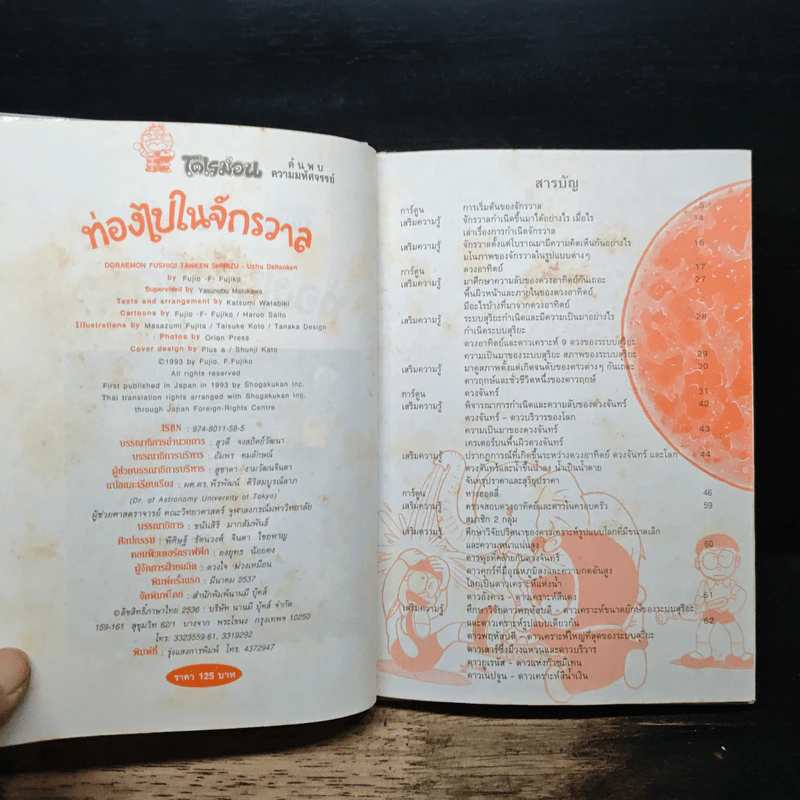 โดเรม่อน
ค้นพบ
ความมหัศจรรย์
ท่องไปในจักรวาล
DORAEMON FUSHIGI TANKEN SHIRIZU - Uchu Daitanken
by Fujio -F- Fujiko
Supervised by Yasunobu Matokawa
Texts and arrangement by Katsumi Watabiki
Cartoons by Fujio -F- Fujiko / Haruo Saito
Illustrations by Masazumi Fujita / Taisuke Koto / Tanaka Design
Photos by Orion Press
Cover design by Plus a / Shunji Kato
©1993 by Fujio. F.Fujiko
All rights reserved
First published in Japan in 1993 by Shogakukan Inc.
Thai translation rights arranged with Shogakukan Inc.
through Japan Foreign-Rights Centre
ISBN : 974-8011-58-5
บรรณาธิการอำนวยการ : สุวดี จงสถิตย์วัฒนา
บรรณาธิการบริหาร : อัมพร คมลักษณ์
ผู้ช่วยบรรณาธิการบริหาร : สุชาดา งามวัฒนจินดา
แปลและเรียบเรียง : ผศ.ดร.พีรพัฒน์ ศิริสมบูรณ์ลาภ
(Dr. of Astronomy University of Tokyo)
ผู้ช่วยศาสตราจารย์ คณะวิทยาศาสตร์ จุฬาลงกรณ์มหาวิทยาลัย
บรรณาธิการ : ชนันสิริ มากสัมพันธ์
ศิลปกรรม : พิศิษฐ์ รัตนวงศ์ จินดา ไชยหาญ
คอมพิวเตอร์กราฟฟิก : ยงยุทธ น้อยคง
ผู้จัดการฝ่ายผลิต : ดวงใจ ม่วงเหมือน
พิมพ์ครั้งแรก : มีนาคม 2537
จัดพิมพ์โดย : สำนักพิมพ์นานมี บุ๊คส์
©ลิขสิทธิ์ภาษาไทย 2536 : บริษัท นานมี บุ๊คส์ จำกัด
159-161 สุขุมวิท 62/1 บางจาก พระโขนง กรุงเทพฯ 10250
โทร. 3323559-61, 3319292
พิมพ์ที่ : รุ่งแสงการพิมพ์ โทร. 4372947
ราคา 125 บาท
สารบัญ
การ์ตูน การเริ่มต้นของจักรวาล 5
เสริมความรู้ จักรวาลกำเนิดขึ้นมาได้อย่างไร เมื่อไร 14
เล่าเรื่องการกำเนิดจักรวาล
เสริมความรู้ จักรวาลตั้งแต่โบราณมามีความคิดเห็นกันอย่างไร 16
มโนภาพของจักรวาลในรูปแบบต่างๆ
การ์ตูน ดวงอาทิตย์ 17
เสริมความรู้ มาศึกษาความลับของดวงอาทิตย์กันเถอะ 27
พื้นผิวหน้าและภายในของดวงอาทิตย์
มีอะไรบ้างที่มาจากดวงอาทิตย์
เสริมความรู้ ระบบสุริยะกำเนิดและมีความเป็นมาอย่างไร 28
กำเนิดระบบสุริยะ
ดวงอาทิตย์และดาวเคราะห์ 9 ดวงของระบบสุริยะ
ความเป็นมาของระบบสุริยะ สภาพของระบบสุริยะ 29
เสริมความรู้ มาดูสภาพตั้งแต่เกิดจนดับของดาวต่างๆ กันเถอะ 30
ดาวฤกษ์และชั่วชีวิตหนึ่งของดาวฤกษ์
การ์ตูน ดวงจันทร์ 31
เสริมความรู้ พิจารณาการกำเนิดและความลับของดวงจันทร์ 42
ดวงจันทร์ - ดาวบริวารของโลก
ความเป็นมาของดวงจันทร์ 43
เครเตอร์บนพื้นผิวดวงจันทร์
เสริมความรู้ ปรากฏการณ์ที่เกิดขึ้นระหว่างดวงอาทิตย์ ดวงจันทร์ และโลก 44
ดวงจันทร์และน้ำขึ้นน้ำลง น้ำเป็นน้ำตาย
จันทรุปราคาและสุริยุปราคา
การ์ตูน หางฮอลลี่ 46
เสริมความรู้ ตรวจสอบดวงอาทิตย์และดาวในครอบครัว 59
สมาชิก 2 กลุ่ม
เสริมความรู้ ศึกษาวิจัยปริศนาของดาวเคราะห์รูปแบบโลกที่มีขนาดเล็ก
และความหนาแน่นสูง 60
ดาวพุธที่คล้ายกับดวงจันทร์
ดาวศุกร์ที่มีอุณหภูมิสูงและความกดดันสูง
โลกเป็นดาวเคราะห์แห่งน้ำ
ดาวอังคาร - ดาวเคราะห์สีแดง 61
เสริมความรู้ ศึกษาวิจัยดาวพฤหัสบดี - ดาวเคราะห์ขนาดยักษ์ของระบบสุริยะ
และดาวเคราะห์รูปแบบเดียวกัน 62
ดาวพฤหัสบดี - ดาวเคราะห์ใหญ่ที่สุดของระบบสุริยะ
ดาวเสาร์ซึ่งมีวงแหวนและดาวบริวาร
ดาวยูเรนัส - ดาวแห่งก๊าซมีเทน
ดาวเนปจูน - ดาวเคราะห์สีน้ำเงิน